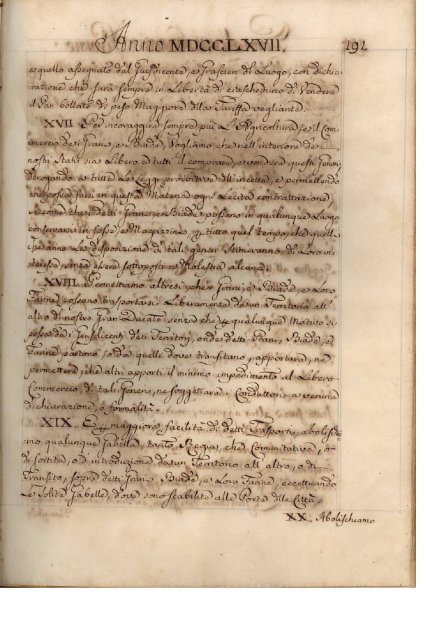 Anno MDCCLXVII. 191
e quello assegnato dal Giusdicente, e Grascieri del Luogo, con dichia-
razione che sarà sempre in Libertà di ciascheduno di Vendere
il Pan bollato di peso Maggiore della Tariffa vegliante.
XVII Per incoraggire sempre più L'Agricoltura, e il Com-
mercio dei Grani, e Biade, Vogliamo che nell'interiore dei
nostri Stati sia Libero a tutti il comprare, e vendere questi generi
Derogando a tutte Le Leggi proibitive dell'incetta, e permettendo
che possa farsi in questa Materia ogni Lecita contrattazione,
siccome che i detti Grani, e Biade possano in qualunque Luogo
conservarsi in fosse, e Magazzini per tutto quel tempo che
Le disposizioni di tali generi stimeranno di Loro in-
teresse, senza esser sottoposti a Molestia alcuna.
XVIII. Permettiamo altresì che i Grani, e Biade, e Loro
Farine possano trasportarsi Liberamente da un Territorio all'
altro di nostro Gran Ducato senza che per qualunque Motivo si
possa da i Giusdicenti dei Territorj, onde detti Grani, Biade, e
Farine partono, o da quelli dove transitano, apportare, nè
permettere, che altri apporti il minimo impedimento al Libero
Commercio di tali Generi, nè soggettare i Conduttori a veruna
dichiarazione, o formalità.
XIX. E per maggiore facilità di detti Trasporti, abolischia-
mo qualunque gabella, tanto Regia, che Comunitativa, o
di sortita, o d'introduzione da un Territorio all'altro, o di
Transito, sopra detti Grani, Biade, e Loro Farine, eccettuando
Le solite Gabelle, dove sono stabilite alle Porte delle Città.
XX. Abolischiamo